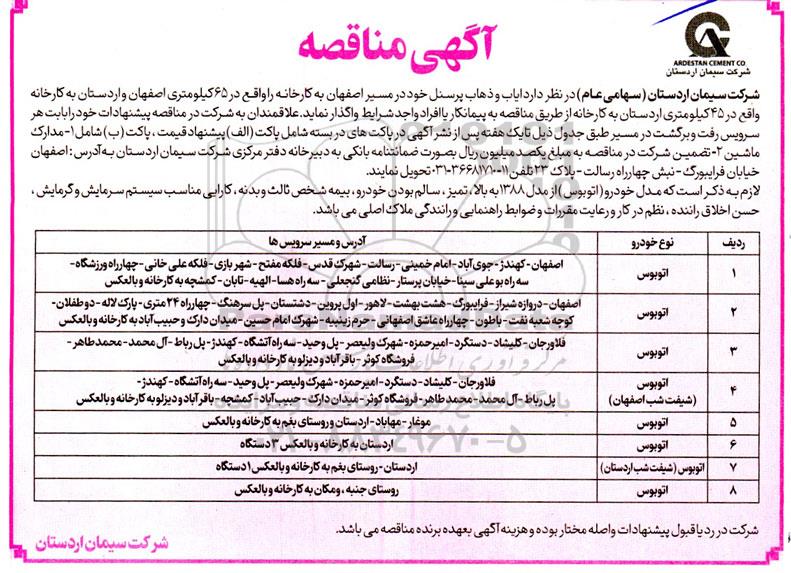 ARDESTAN CEMENT CO
شرکت سیمان اردستان
آگهی مناقصه
شرکت سیمان اردستان (سهامی عام) در نظر دارد ایاب و ذهاب پرسنل خود در مسیر اصفهان به کارخانه را واقع در ۶۵ کیلومتری اصفهان و اردستان به کارخانه
واقع در ۴۵ کیلومتری اردستان به کارخانه از طریق مناقصه به پیمانکار یا افراد واجد شرایط واگذار نماید. علاقمندان به شرکت در مناقصه پیشنهادات خود را بابت هر
سرویس رفت و برگشت در مسیر طبق جدول ذیل تا یک هفته پس از نشر آگهی در پاکت های در بسته شامل پاکت (الف) پیشنهاد قیمت ، پاکت (ب) شامل ۱- مدارک
ماشین ۲- تضمین شرکت در مناقصه به مبلغ یکصد میلیون ریال بصورت ضمانتنامه بانکی به دبیرخانه دفتر مرکزی شرکت سیمان اردستان به آدرس : اصفهان
خیابان فرایبورگ - نبش چهارراه رسالت - پلاک ۲۳ تلفن ۱۱-۳۶۶۸۱۷۱۰-۰۳۱ تحویل نمایند.
لازم به ذکر است که مدل خودرو (اتوبوس) از مدل ۱۳۸۸ به بالا ، تمیز ، سالم بودن خودرو ، بیمه شخص ثالث و بدنه ، کارایی مناسب سیستم سرمایش و گرمایش ،
حسن اخلاق راننده ، نظم در کار و رعایت مقررات و ضوابط راهنمایی و رانندگی ملاک اصلی می باشد.
ردیف نوع خودرو آدرس و مسیر سرویس ها
۱ اتوبوس اصفهان - کهندژ - جوی آباد - امام خمینی - رسالت - شهرک قدس - فلکه مفتح - شهر بازی - فلکه علی خانی - چهارراه ورزشگاه -
سه راه بوعلی سینا - خیابان پرستار - نظامی گنجعلی - سه راه هسا - الهیه - تابان - کمشچه به کارخانه و بالعکس
۲ اتوبوس اصفهان - دروازه شیراز - فرایبورگ - هشت بهشت - لاهور - اول پروین - دشتستان - پل سرهنگ - چهارراه ۲۴ متری - پارک لاله - دو طفلان -
کوچه شعبه نفت - باطون - چهارراه عاشق اصفهانی - حرم زینبیه - شهرک امام حسین - میدان دارک و حبیب آباد به کارخانه و بالعکس
۳ اتوبوس فلاورجان - کلیشاد - دستگرد - امیرحمزه - شهرک ولیعصر - پل وحید - سه راه آتشگاه - کهندژ - پل رباط - آل محمد - محمد طاهر -
فروشگاه کوثر - باقر آباد و دیزلو به کارخانه و بالعکس
۴ اتوبوس فلاورجان - کلیشاد - دستگرد - امیرحمزه - شهرک ولیعصر - پل وحید - سه راه آتشگاه - کهندژ -
(شیفت شب اصفهان) پل رباط - آل محمد - محمد طاهر - فروشگاه کوثر - میدان دارک - حبیب آباد - کمشچه - باقر آباد و دیزلو به کارخانه و بالعکس
۵ اتوبوس موغار - مهاباد - اردستان و روستای بغم به کارخانه و بالعکس
۶ اتوبوس اردستان به کارخانه و بالعکس ۳ دستگاه
۷ اتوبوس (شیفت شب اردستان) اردستان - روستای بغم به کارخانه و بالعکس ۱ دستگاه
۸ اتوبوس روستای جنبه ، ومکان به کارخانه و بالعکس
شرکت در رد یا قبول پیشنهادات واصله مختار بوده و هزینه آگهی بعهده برنده مناقصه می باشد.
شرکت سیمان اردستان